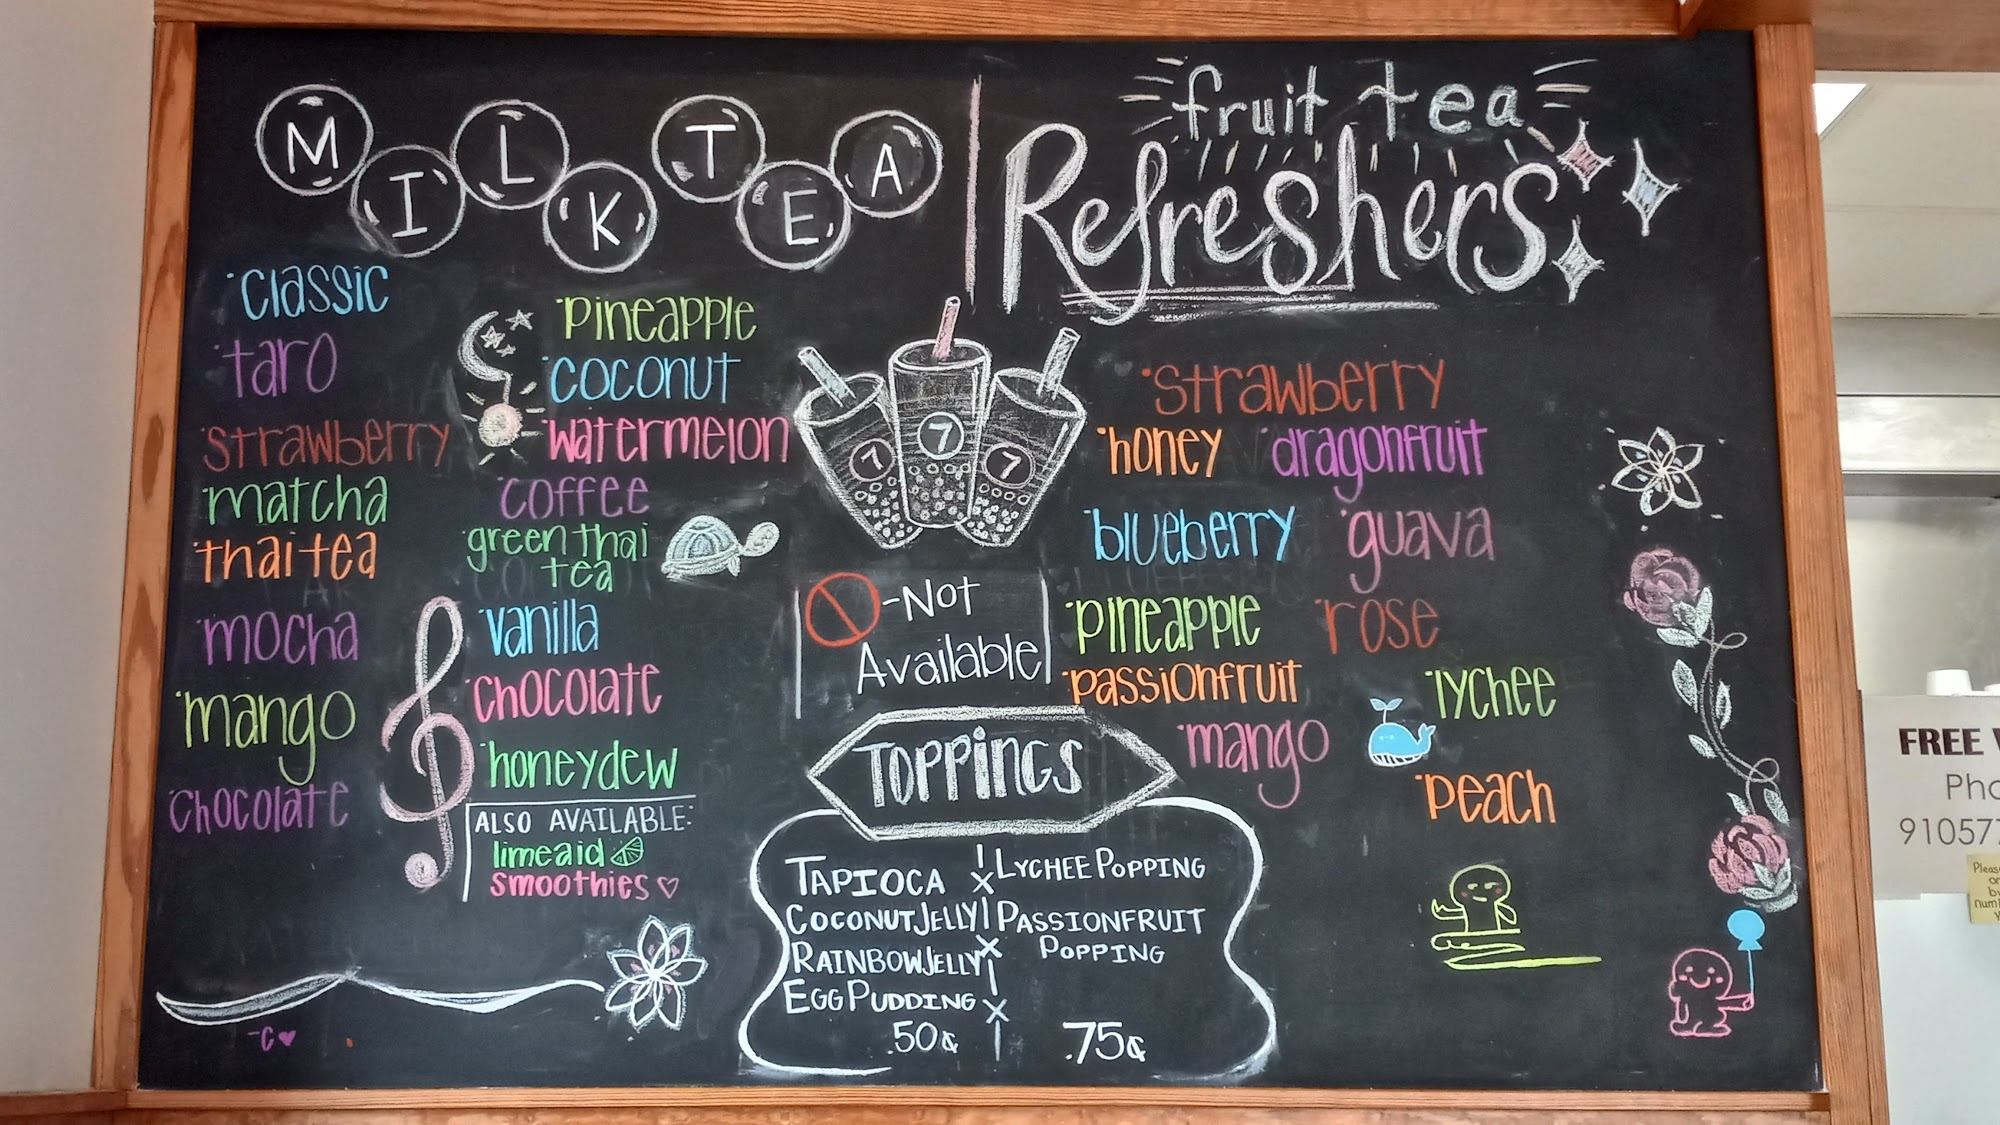 MILK TEA
·classic
·taro
·strawberry
·matcha
·thai tea
·mocha
·mango
·chocolate
·pineapple
·coconut
·watermelon
·coffee
·green thai
tea
·vanilla
·chocolate
·honeydew
ALSO AVAILABLE:
limeaid
smoothies
-C
7
7
7
-Not
Available
fruit tea
Refreshers
·strawberry
·honey
·dragonfruit
·blueberry
·guava
·pineapple
·rose
·passionfruit
·lychee
·mango
·peach
TOPPINGS
TAPIOCA
COCONUT JELLY
RAINBOW JELLY
EGG PUDDING
.50¢
LYCHEE POPPING
PASSIONFRUIT
POPPING
.75¢
FREE
Pho
91057
Please